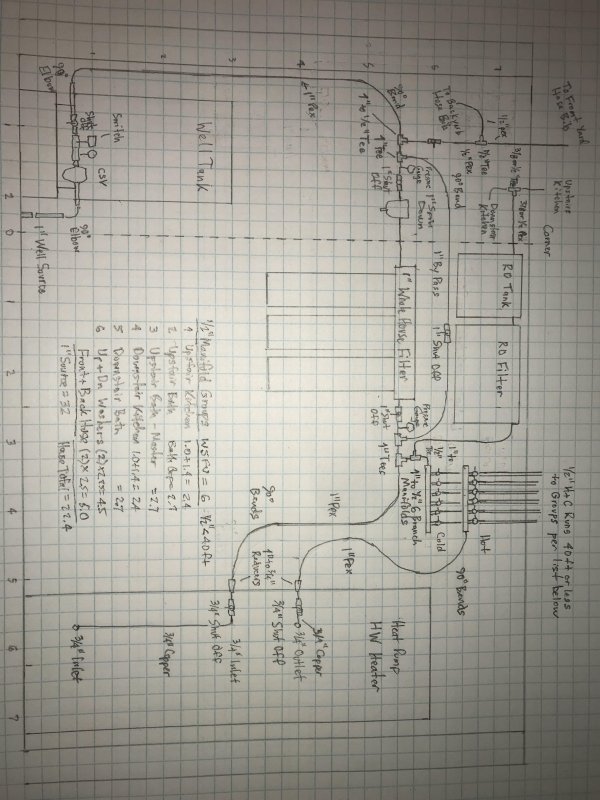 To Front Yard
Hose Bib
Upstairs
Kitchen
Corner
1/2" H+C Runs 40ft or less
to Groups per list below
1/2" Pex
3/8 to 1/2" Tee
3/8 to 1/2" Pex
To Backyard
Hose Bib
1/2" Tee
1/2" Pex
Downstair
Kitchen
90° Bend
RO Tank
RO Filter
Hot
Cold
90° Bends
Heat Pump
HW Heater
90°
Bend
1" to 1/2" Tee
1" Tee
1" Shut
Off
Pressure
Gauge
1" Spin
Down
1" By Pass
1" Shut Off
1" Whole House Filter
Pressure
Gauge
1" Shut
Off
1" Tees
1" to
1/2"
Tee
1" to 1/2" 6 Branch
Manifolds
1" Pex
1" Pex
90°
Bends
1" to 3/4"
Reducers
3/4" Copper
3/4" Outlet
3/4" Shut Off
3/4" Inlet
3/4" Shut Off
3/4" Copper
3/4" Inlet
1" Pex
Well Tank
Switch
Shut
Off
CSV
90°
Elbow
90°
Elbow
1" Well Source
1/2" Manifold Groups WSFU = 6 - 1/2" < 40ft
1 Upstair Kitchen 1.0+1.4 = 2.4
2 Upstair Bath = 2.7
3 Upstair Bath - Master = 2.7
4 Downstair Kitchen 1.0+1.4 = 2.4
5 Downstair Bath = 2.7
6 Up + Dn Washers (2) x 2.25 = 4.5
Front + Back Hose (2) x 2.5 = 5.0
1" Source = 32 House Total = 22.4
1 2 3 4 5 6 7
1 2 0 1 2 3 4 5 6 7